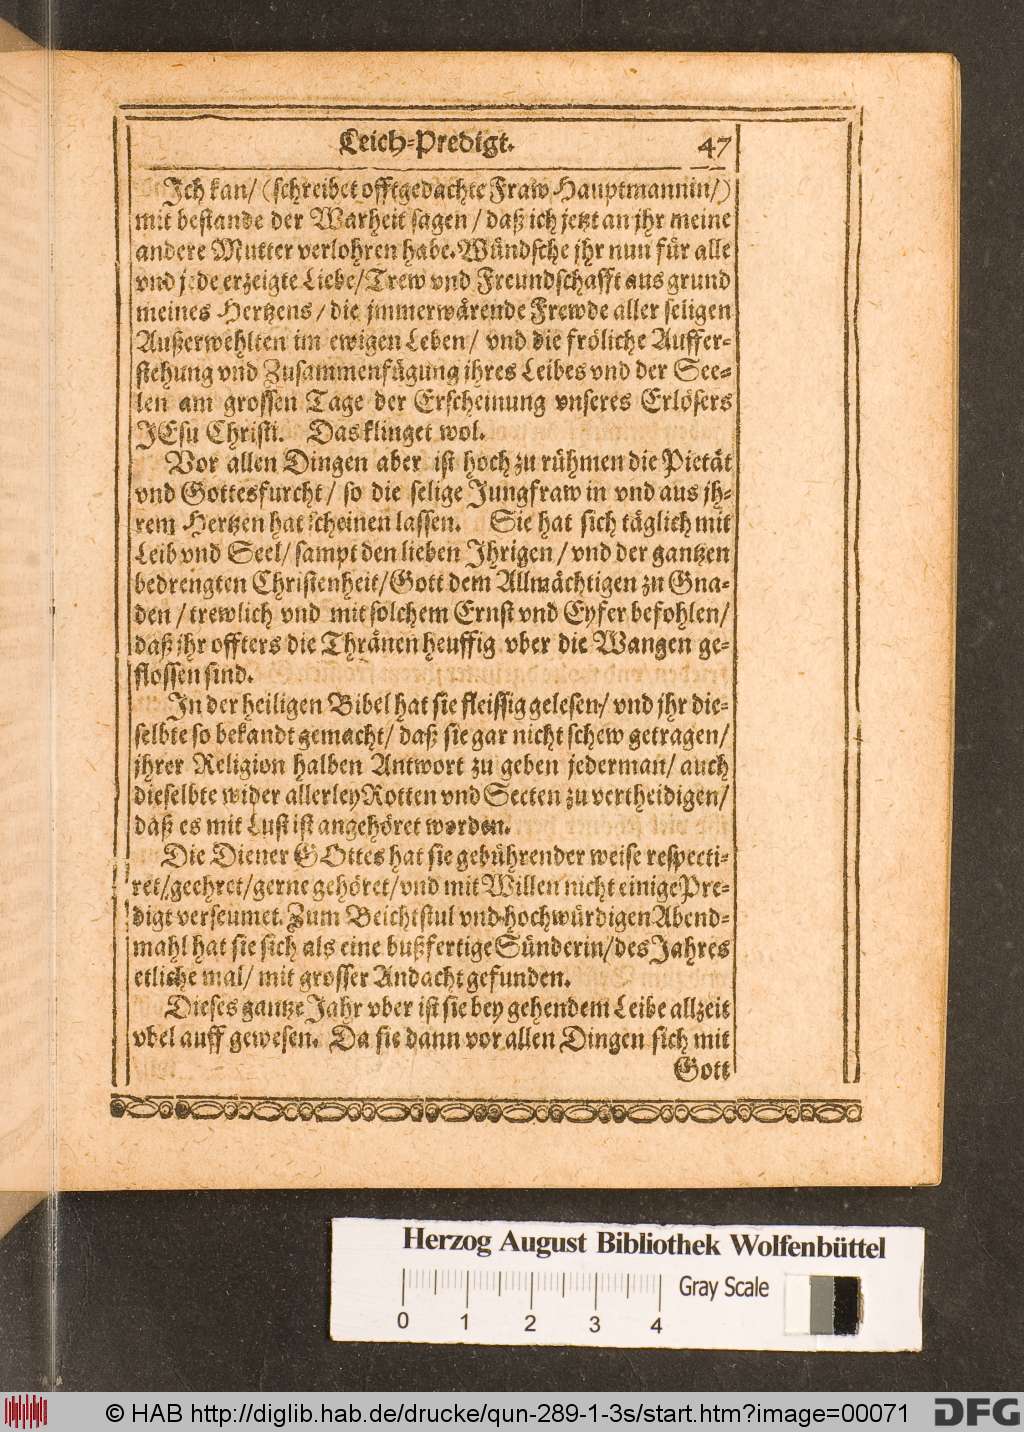 Leich-Predigt. 47
Ich kan/ (schreibet offtgedachte Fraw Hauptmannin/)
mit bestande der Warheit sagen/ daß ich jetzt an jhr meine
andere Mutter verlohren habe. Wündsche jhr nun für alle
vnd jede erzeigte Liebe/ Trew vnd Freundschafft aus grund
meines Hertzens/ die jmmerwärende Frewde aller seligen
Außerwehlten im ewigen Leben/ vnd die fröliche Auffer-
stehung vnd Zusammenfügung ihres Leibes vnd der See-
len am grossen Tage der Erscheinung vnseres Erlösers
JEsu Christi. Das klinget wol.
Vor allen Dingen aber ist hoch zu rühmen die Pietät
vnd Gottesfurcht/ so die selige Jungfraw in vnd aus jh-
rem Hertzen hat scheinen lassen. Sie hat sich täglich mit
Leib vnd Seel/ sampt den lieben Ihrigen/ vnd der gantzen
bedrengten Christenheit/ Gott dem Allmächtigen zu Gna-
den/ trewlich vnd mit solchem Ernst vnd Eyfer befohlen/
daß jhr offters die Thränen heuffig vber die Wangen ge-
flossen sind.
In der heiligen Bibel hat sie fleissig gelesen/ vnd jhr die-
selbte so bekandt gemacht/ daß sie gar nicht schew getragen/
jhrer Religion halben Antwort zu geben jederman/ auch
dieselbte wider allerley Rotten vnd Secten zu vertheidigen/
daß es mit Lust ist angehöret worden.
Die Diener GOttes hat sie gebührender weise respecti-
ret/ geehret/ gerne gehöret/ vnd mit Willen nicht einige Pre-
digt verseumet. Zum Beichtstul vnd hochwürdigen Abend-
mahl hat sie sich als eine bußfertige Sünderin/ des Jahres
etliche mal/ mit grosser Andacht gefunden.
Dieses gantze Jahr vber ist sie bey gehendem Leibe allzeit
vbel auff gewesen. Da sie dann vor allen Dingen sich mit
Gott
Herzog August Bibliothek Wolfenbüttel
Gray Scale
0 1 2 3 4
© HAB http://diglib.hab.de/drucke/qun-289-1-3s/start.htm?image=00071
DFG